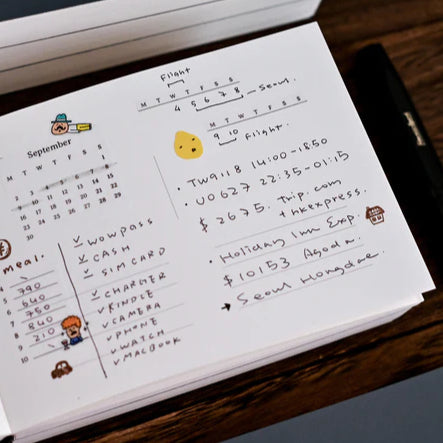 Flight
M T W T F S S
4 5 6 7 8 - Seoul.
M T W T F S S
9 10 Flight.
September
M T W T F S S
1
2 3 4 5 6 7 8
9 10 11 12 13 14 15
16 17 18 19 20 21 22
23 24 25 26 27 28 29
30
• TW9118 14:00-1850
• UO627 22:35-01:15
$2675. Trip.com
+hkexpress.
• Holiday Inn Exp.
$10153 Agoda.
→ Seoul Hongdae.
meal.
4
5 790
6 640
7 750
8 840
9 210
10
✓ WOWPASS
✓ CASH
✓ SIMCARD
✓ CHARGER
✓ KINDLE
✓ CAMERA
✓ PHONE
✓ WATCH
✓ MACBOOK